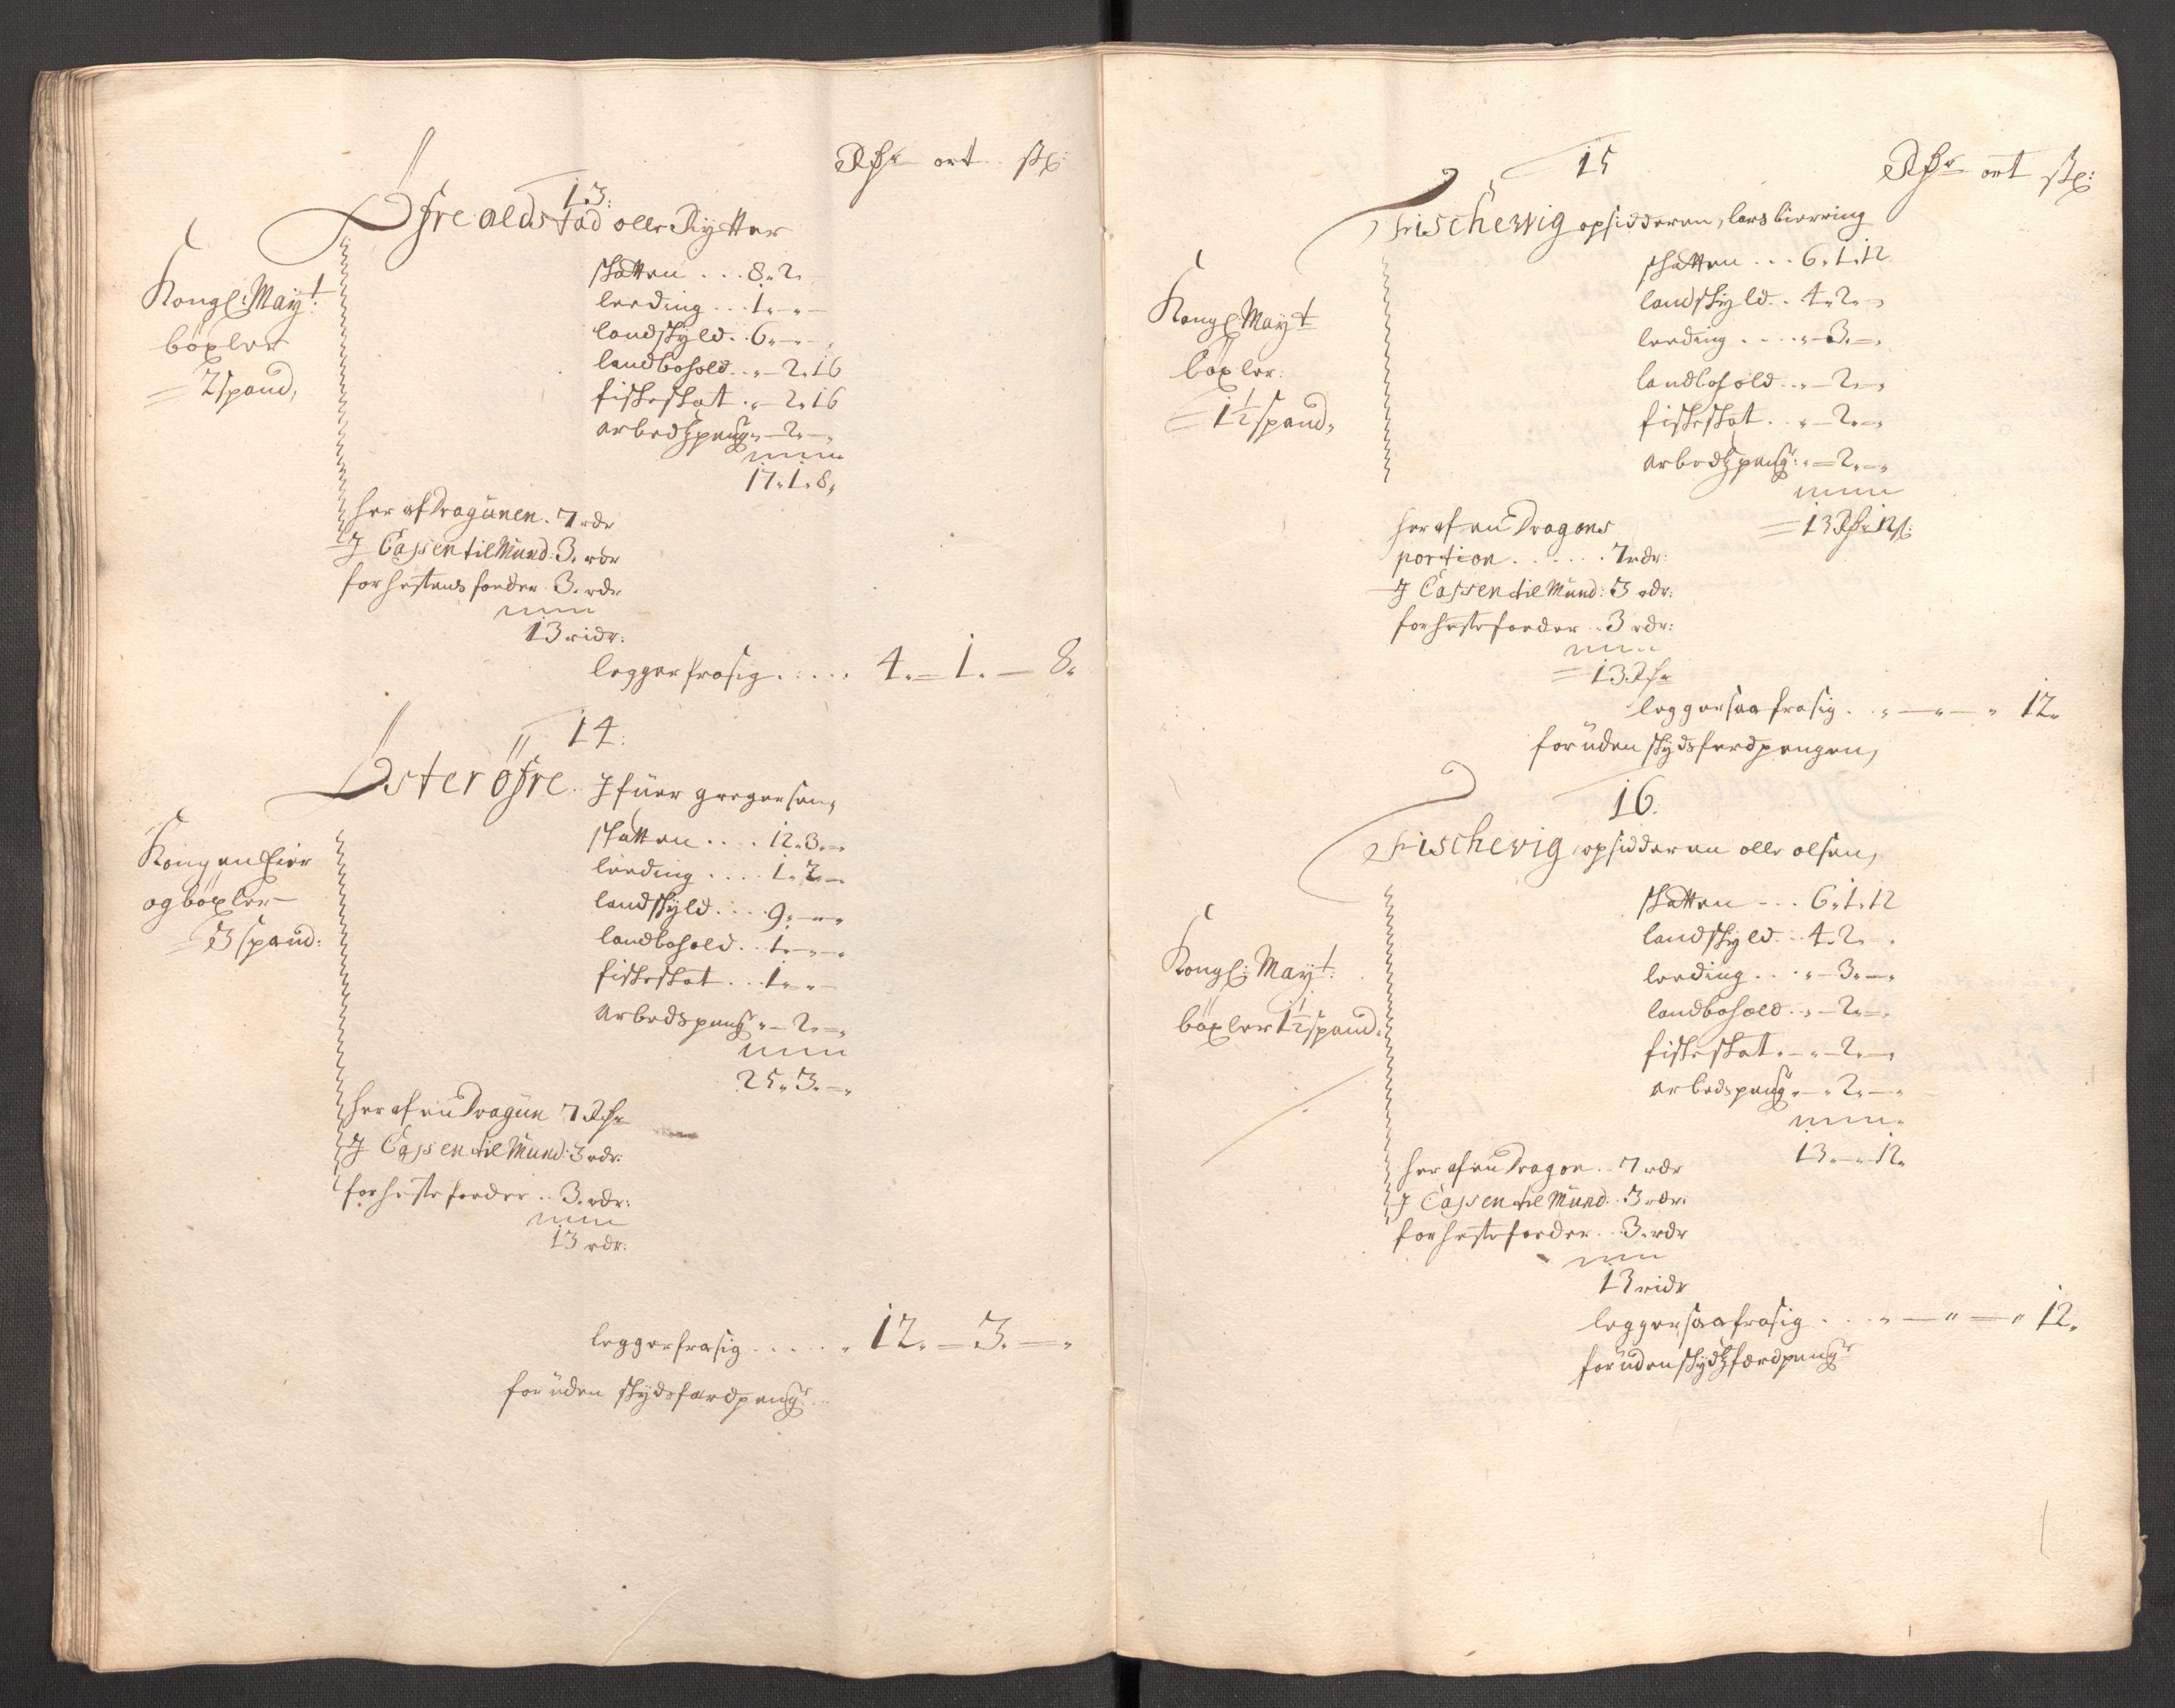 Rdr ort sk:
13:
Øfre aldstad olle Rytter
Kongl: Mayt:
böxler
2 spand,
skatten . . . 8. 2.
leeding . . . 1. - -
landskyld . . 6. - -
landbohold . . - 2. 16
fiskeskat . - 2. 16
arbedtzpeng - 2. -
17. 1. 8,
her af Dragunen . 7 rdr
J Cassen til Mund: 3. rdr
for hestens foeder 3. rdr
13 ridr:
legger fra sig . . . . . 4. - 1. - 8.
14:
Øster öfre . Jfuer gregersen,
Kongen Eier
og böxler
3 spand:
skatten . . . . 12. 3. -
leeding . . . . 1. 2. -
landskyld . . . . 9. - -
landbohold . . . 1. - -
fiskeskat . . . 1. - -
arbedspeng - 2. -
25. 3. -
her af en Dragun 7 Rdr
J Cassen til Mund: 3 rdr:
for heste foeder . . 3. rdr:
13 rdr:
legger fra sig . . . . . 12. - 3. -
foruden skydsferdpeng
15
Rdr ort sk:
Fischewig opsidderen, lars bierring
Kongl: Mayt
böxler:
1½ spand,
skatten . . . 6. 1. 12
landskyld . . 4. 2. -
leeding . . . . - 3. -
landbohold . . - 2. -
fiskeskat . . - 2. -
arbedtzpeng: - 2. -
13 Rdr 12 s:
her af en Dragons
portion . . . . . . 7 rdr:
J Cassen til Mund: 3 rdr:
for heste foeder . . 3 rdr:
13 Rdr
legger saa fra sig . . - - 12.
foruden skydsferdpengen,
16.
Fischevig opsidderen olle olsen,
Kongl: Mayt:
böxler 1½ spand:
skatten - . . 6. 1. 12
landskyld . . 4. 2. -
leeding . . . - 3. -
landbohold . . - 2. -
fiskeskat . - - 2. -
arbedspeng - 2. -
13. - 12.
her af en Dragon . . 7 rdr
J Cassen til Mund: 3 rdr.
for heste foeder . . . 3. rdr
13 ridr
legger saa fra sig . . . - - 12.
foruden skydtzferdpeng